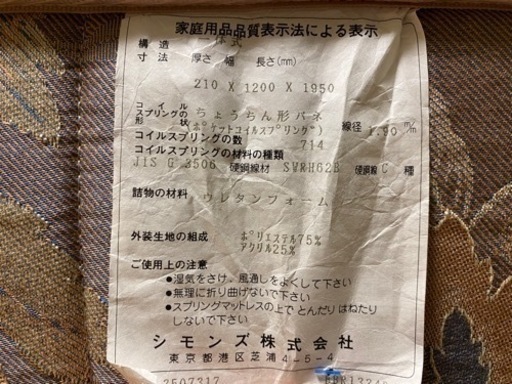 家庭用品品質表示法による表示
構造 一体式
寸法 厚さ 幅 長さ(mm)
210 X 1200 X 1950
コイルスプリングの形状 ちょうちん形バネ
(ポケットコイルスプリング) 線径 1.90 m/m
コイルスプリングの数 714
コイルスプリングの材料の種類
JIS G 3506 硬鋼線材 SWRH62B 硬鋼線 C 種
詰物の材料 ウレタンフォーム
外装生地の組成 ポリエステル75%
アクリル25%
ご使用上の注意
●湿気をさけ、風通しをよくして下さい
●無理に折り曲げないで下さい
●スプリングマットレスの上で とんだり はねたり
しないで下さい。
シモンズ株式会社
東京都港区芝浦4-5-4
2507317